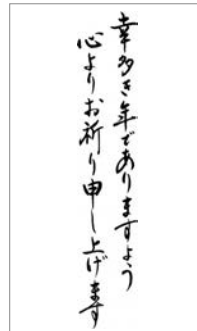 幸多き年でありますよう
心よりお祈り申し上げます